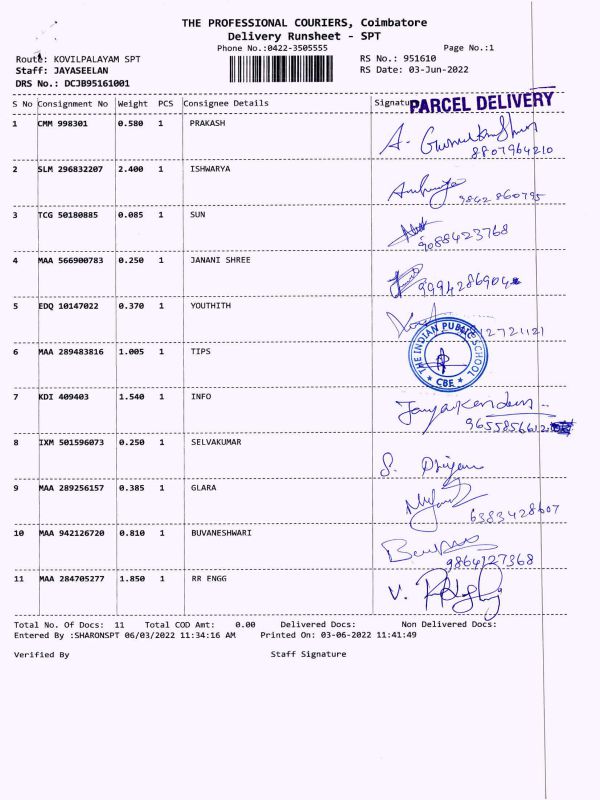 THE PROFESSIONAL COURIERS, Coimbatore
Delivery Runsheet - SPT
Phone No.:0422-3505555 Page No.:1
Route: KOVILPALAYAM SPT RS No.: 951610
Staff: JAYASEELAN RS Date: 03-Jun-2022
DRS No.: DCJB95161001
PARCEL DELIVERY
S No Consignment No Weight PCS Consignee Details Signature
1 CMM 998301 0.580 1 PRAKASH
8807964210
2 SLM 296832207 2.400 1 ISHWARYA
9842860795
3 TCG 50180885 0.085 1 SUN
9088423768
4 MAA 566900783 0.250 1 JANANI SHREE
9994286904
5 EDQ 10147022 0.370 1 YOUTHITH
12721121
THE INDIAN PUBLIC SCHOOL
6 MAA 289483816 1.005 1 TIPS
CBE
7 KDI 409403 1.540 1 INFO
9655856612
8 IXM 501596073 0.250 1 SELVAKUMAR
S.
9 MAA 289256157 0.385 1 GLARA
6383428607
10 MAA 942126720 0.810 1 BUVANESHWARI
9864127368
11 MAA 284705277 1.850 1 RR ENGG
V.
Total No. Of Docs: 11 Total COD Amt: 0.00 Delivered Docs: Non Delivered Docs:
Entered By :SHARONSPT 06/03/2022 11:34:16 AM Printed On: 03-06-2022 11:41:49
Verified By Staff Signature